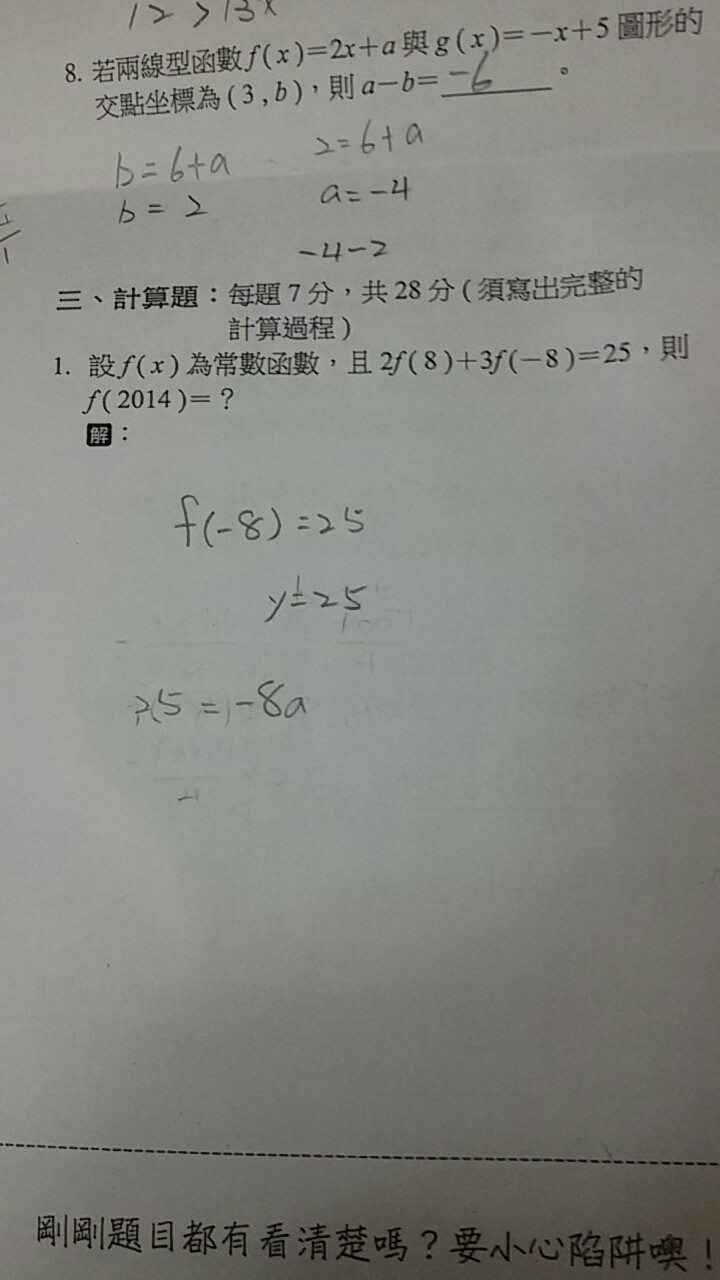 12 > 13x
8. 若兩線型函數 f(x)=2x+a 與 g(x)=-x+5 圖形的
交點坐標為(3,b),則 a-b= -6 。
b=6+a 2=6+a
b= 2 a=-4
-4-2
三、計算題:每題7分,共28分(須寫出完整的
計算過程)
1. 設 f(x) 為常數函數,且 2f(8)+3f(-8)=25,則
f(2014)=?
解:
f(-8)=25
y=25
25=-8a
剛剛題目都有看清楚嗎?要小心陷阱噢!